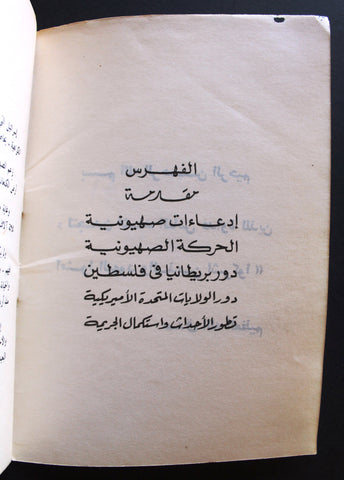 الفهرس
مقدمة
إدعاءات صهيونية
الحركة الصهيونية
دور بريطانيا في فلسطين
دور الولايات المتحدة الأميريكية
تطور الأحداث واستكمال الجريمة